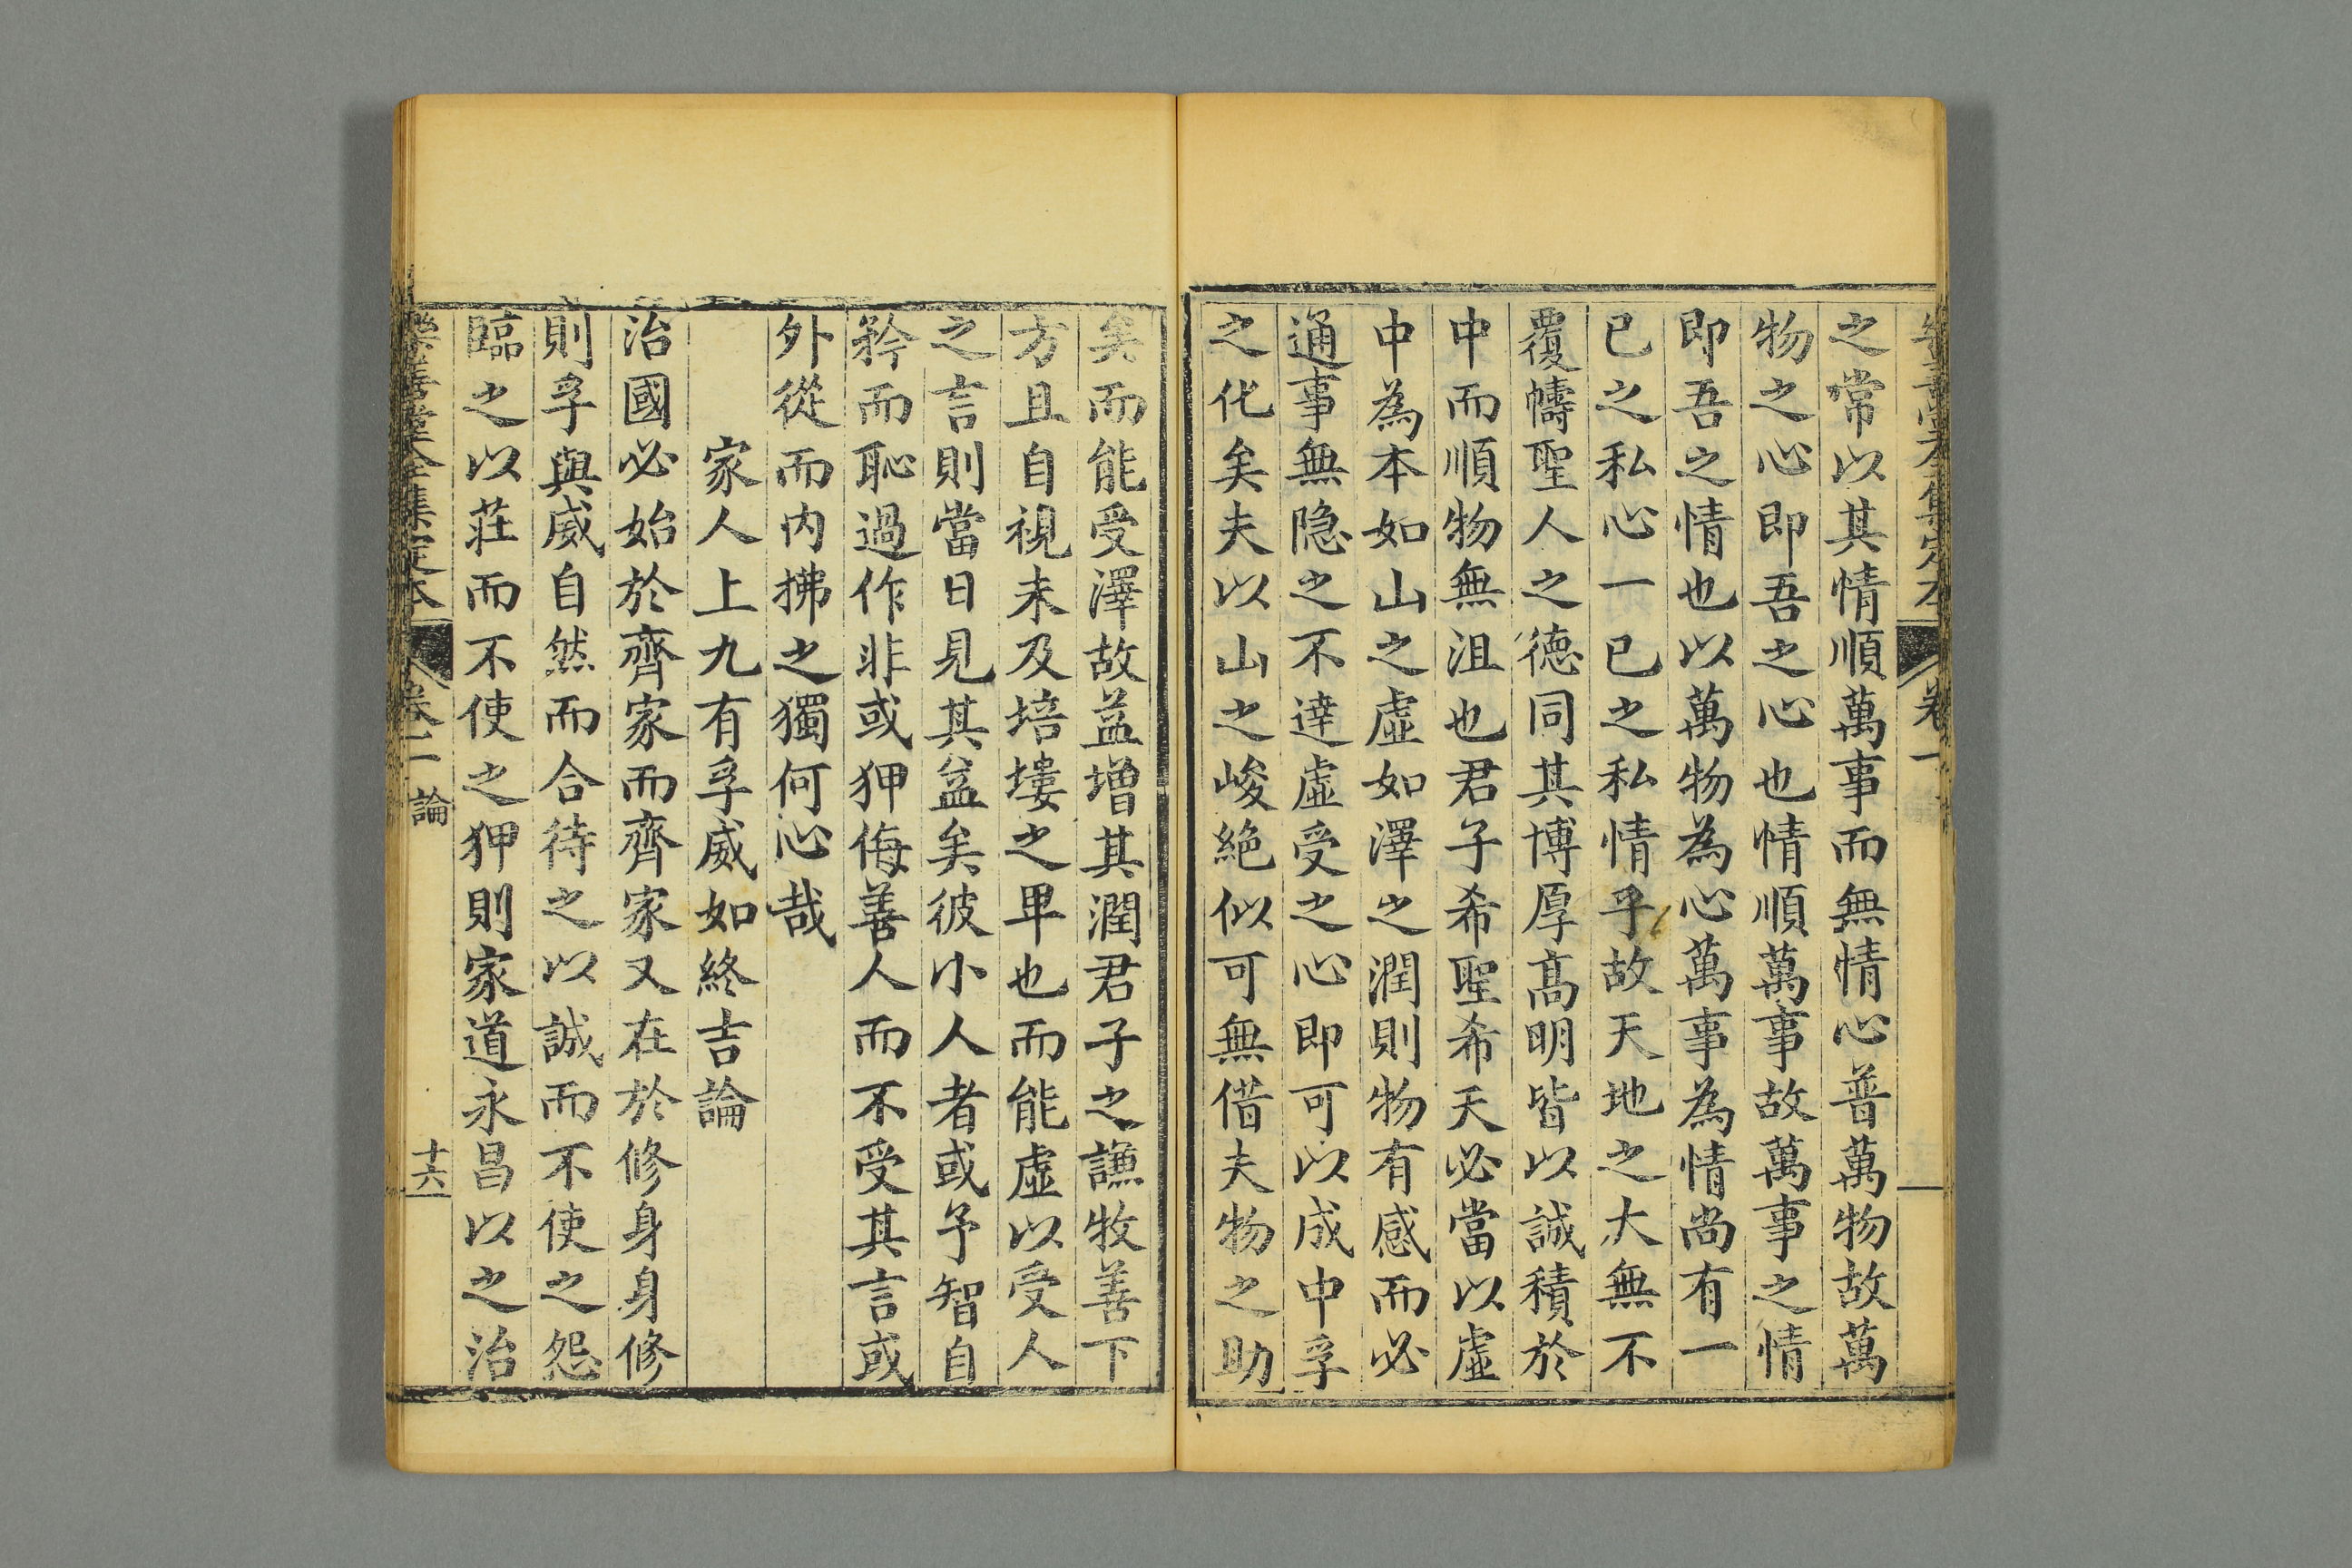 樂善堂全集定本 卷一
之常以其情順萬事而無情心普萬物故萬
物之心即吾之心也情順萬事故萬事之情
即吾之情也以萬物為心萬事為情尚有一
已之私心一已之私情乎故天地之大無不
覆幬聖人之德同其博厚髙明皆以誠積於
中而順物無沮也君子希聖希天必當以虛
中為本如山之虛如澤之潤則物有感而必
通事無隐之不達虛受之心即可以成中孚
之化矣夫以山之峻絶似可無借夫物之助
矣而能受澤故益增其潤君子之謙牧善下
方且自視未及培塿之卑也而能虛以受人
之言則當日見其益矣彼小人者或予智自
矜而恥過作非或狎侮善人而不受其言或
外從而内拂之獨何心哉
家人上九有孚威如終吉論
治國必始於齊家而齊家又在於修身身修
則孚與威自然而合待之以誠而不使之怨
臨之以莊而不使之狎則家道永昌以之治
樂善堂全集定本 卷一 論 十六